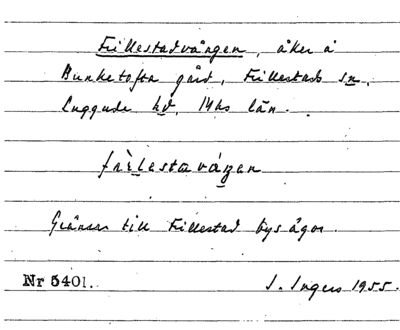 Fillestadvången, åker å
Bunketofta gård, Fillestads sn,
Luggude hd, Mhs län.
frìlestavàŋen
Gränsar till Fillestad bys ägor.
Nr 5401.
I. Ingers 1955.